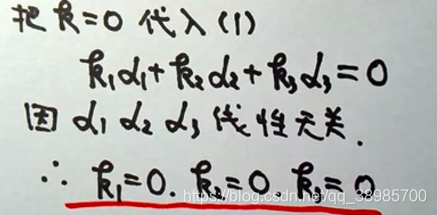 把 k=0 代入 (1)
k₁α₁+k₂α₂+k₃α₃=0
因 α₁ α₂ α₃ 线性无关.
∴ k₁=0. k₂=0. k₃=0
https://blog.csdn.net/qq_38985700